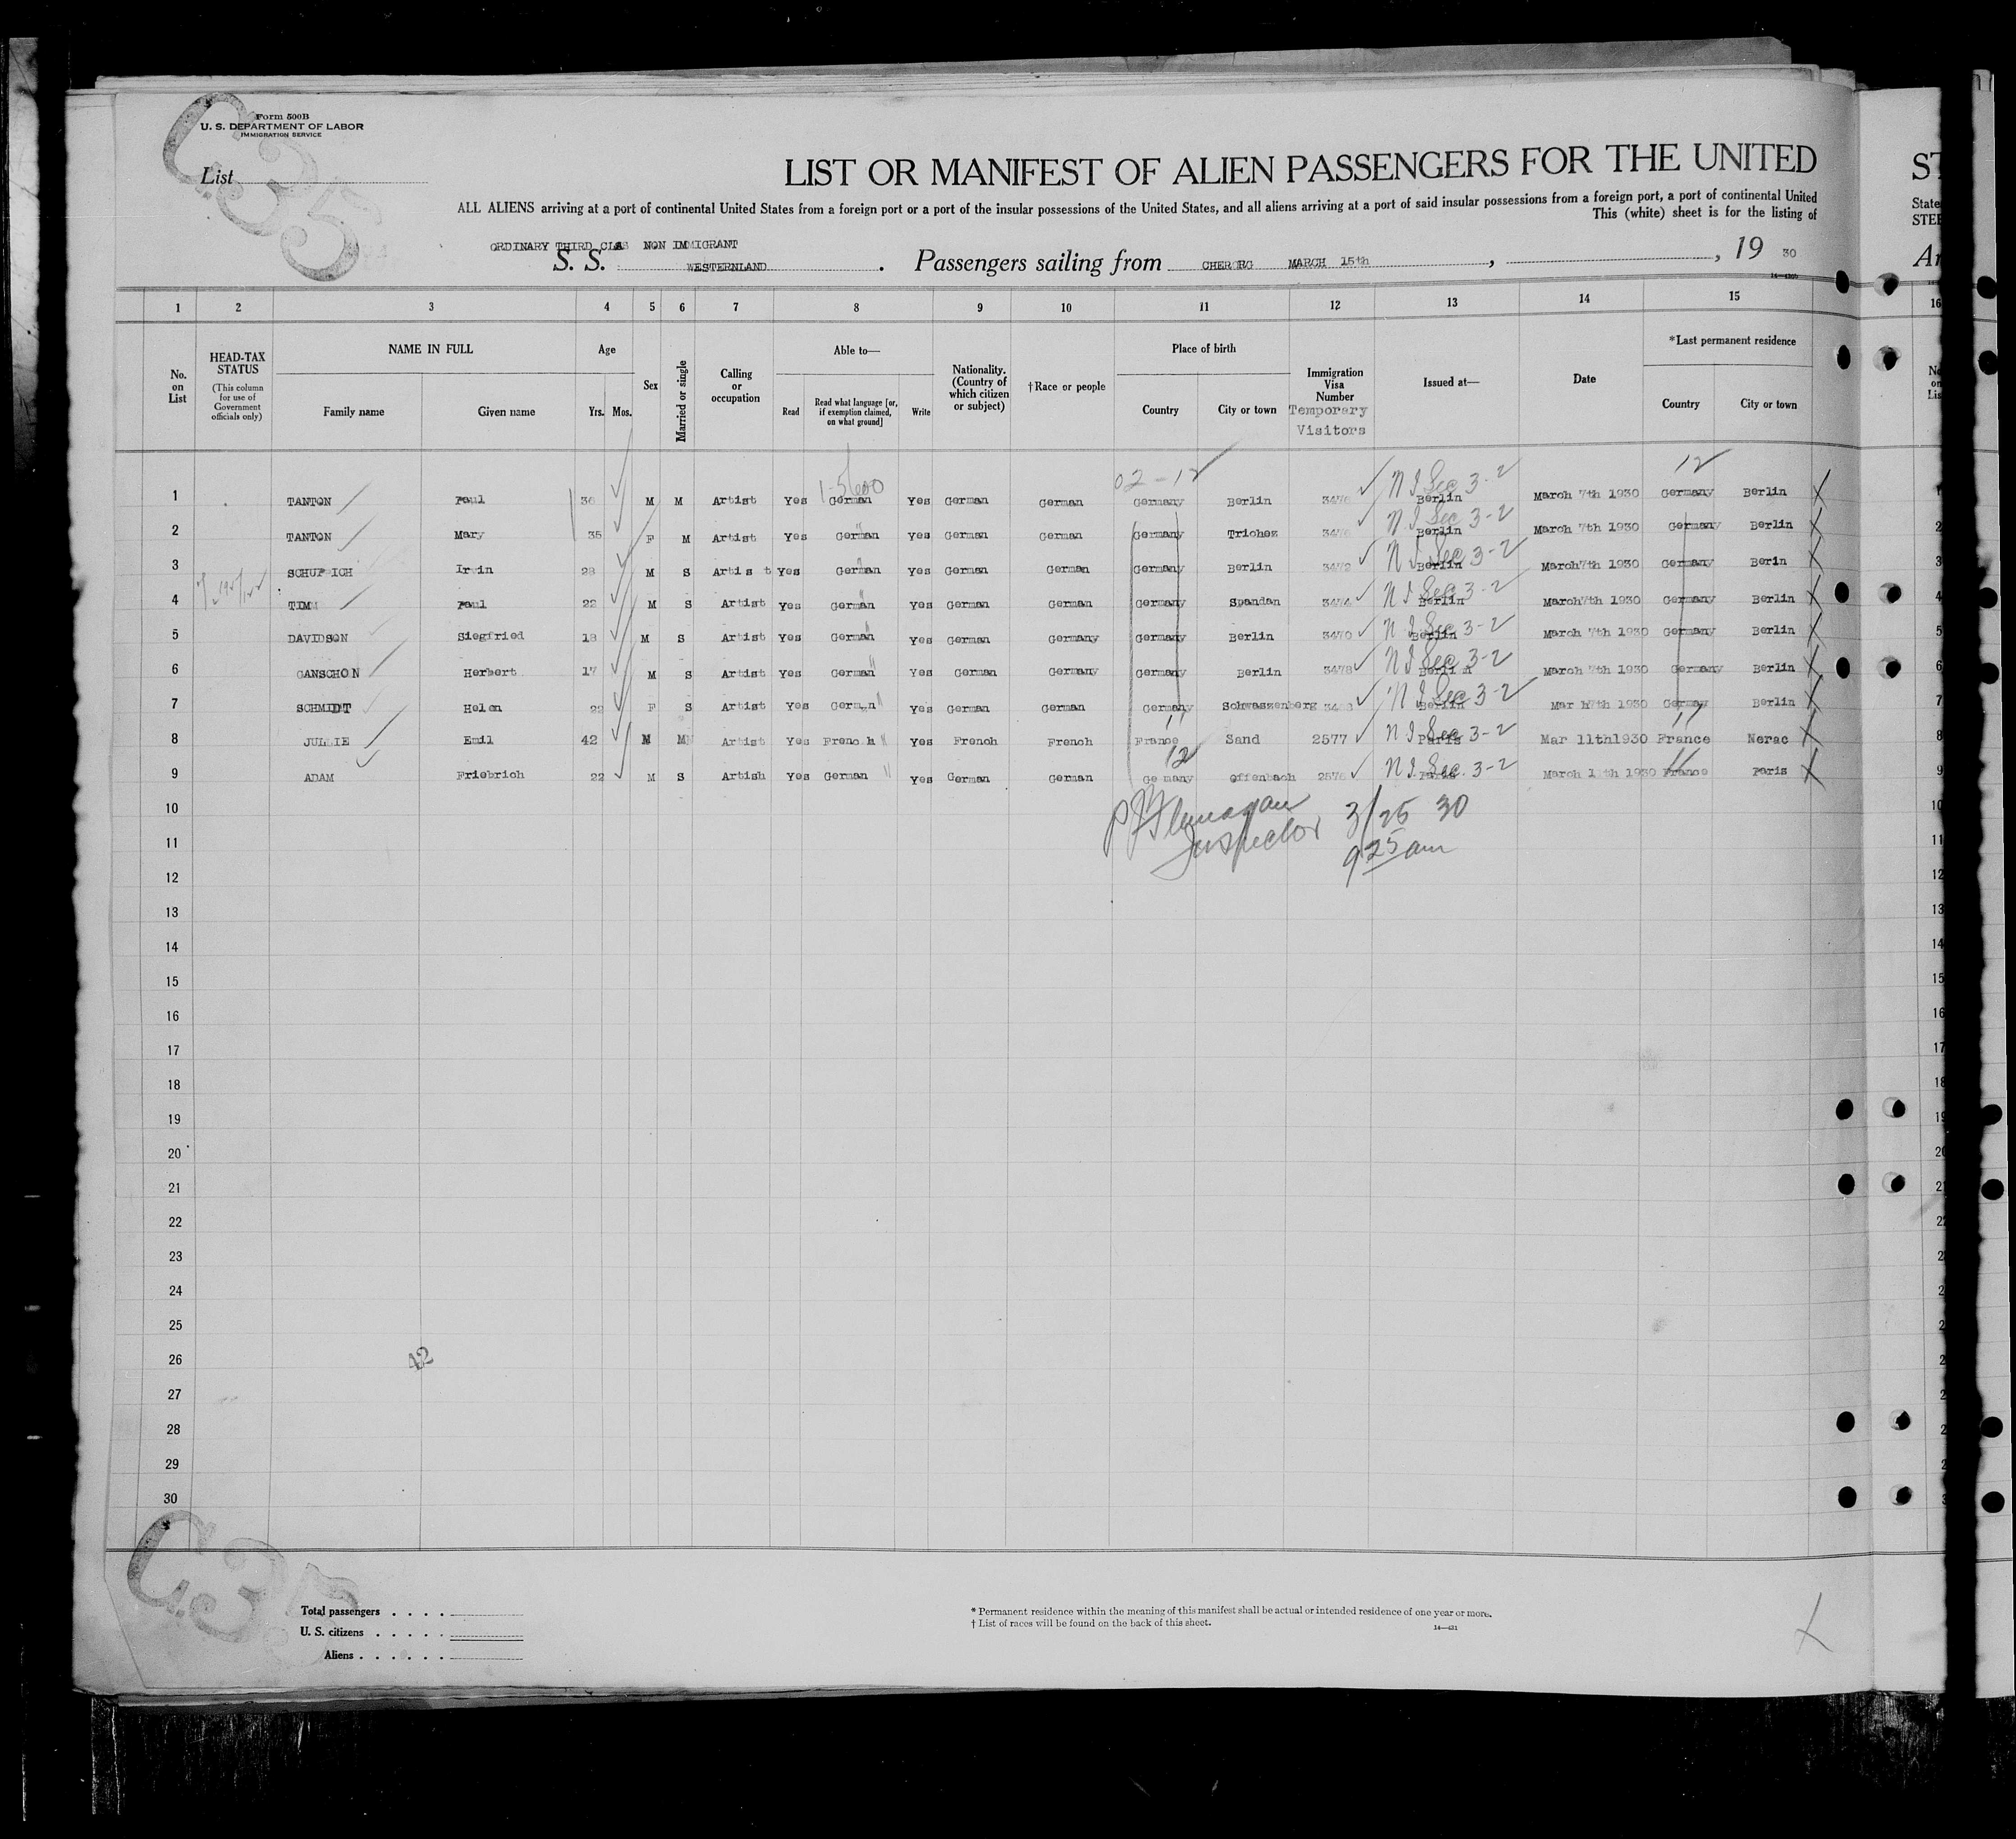 Form 500B
U. S. DEPARTMENT OF LABOR
IMMIGRATION SERVICE
C35
List
LIST OR MANIFEST OF ALIEN PASSENGERS FOR THE UNITED
ST
ALL ALIENS arriving at a port of continental United States from a foreign port or a port of the insular possessions of the United States, and all aliens arriving at a port of said insular possessions from a foreign port, a port of continental United
State
This (white) sheet is for the listing of
STEE
ORDINARY THIRD CLAS NON IMMIGRANT
S. S. WESTERNLAND . Passengers sailing from CHERORG MARCH 15th , , 19 30
Ar
1 2 3 4 5 6 7 8 9 10 11 12 13 14 15 16
No. on List
HEAD-TAX STATUS (This column for use of Government officials only)
NAME IN FULL
Family name Given name
Age
Yrs. Mos.
Sex
Married or single
Calling or occupation
Able to—
Read Read what language [or, if exemption claimed, on what ground] Write
Nationality. (Country of which citizen or subject)
†Race or people
Place of birth
Country City or town
Immigration Visa Number
Temporary Visitors
Issued at—
Date
*Last permanent residence
Country City or town
02-12 12
1 TANTON Paul 36 M M Artist Yes German Yes German German Germany Berlin 3476 N I Sec 3-2 Berlin March 7th 1930 Germany Berlin
2 TANTON Mary 35 F M Artist Yes German Yes German German Germany Trichez N I Sec 3-2 Berlin March 7th 1930 Germany Berlin
3 SCHUP ICH Irwin 28 M S Artis t Yes German Yes German German Germany Berlin 3472 N I Sec 3-2 Berlin March7th 1930 Germany Berin
4 TIMM Paul 22 M S Artist Yes German Yes German German Germany Spandan 3474 N I Sec 3-2 Berlin March7th 1930 Germany Berlin
5 DAVIDSON Siegfried 18 M S Artist Yes German Yes German Germany Germany Berlin 3470 N I Sec 3-2 Berlin March 7th 1930 Germany Berlin
6 GANSCHON Herbert 17 M S Artist Yes German Yes German Germany Germany Berlin 3478 N I Sec 3-2 Berlin March 7th 1930 Germany Berlin
7 SCHMIDT Helen 22 F S Artist Yes German Yes German German Germany Schwaszenberg N I Sec 3-2 Berlin Mar h7th 1930 Germany Berlin
11 11
8 JULLIE Emil 42 M M Artist Yes French Yes French French France Sand 2577 N I Sec 3-2 Paris Mar 11th1930 France Nerac
12 11
9 ADAM Friebrich 22 M S Artish Yes German Yes German German Ge many Offenbach 2576 N I Sec. 3-2 March 11th 1930 France Paris
10
Inspector 3/25 30
11
925 am
12
13
14
15
16
17
18
19
20
21
22
23
24
25
26
42
27
28
29
30
C35
Total passengers . . . .
U. S. citizens . . . . .
Aliens . . . . . .
* Permanent residence within the meaning of this manifest shall be actual or intended residence of one year or more.
† List of races will be found on the back of this sheet.